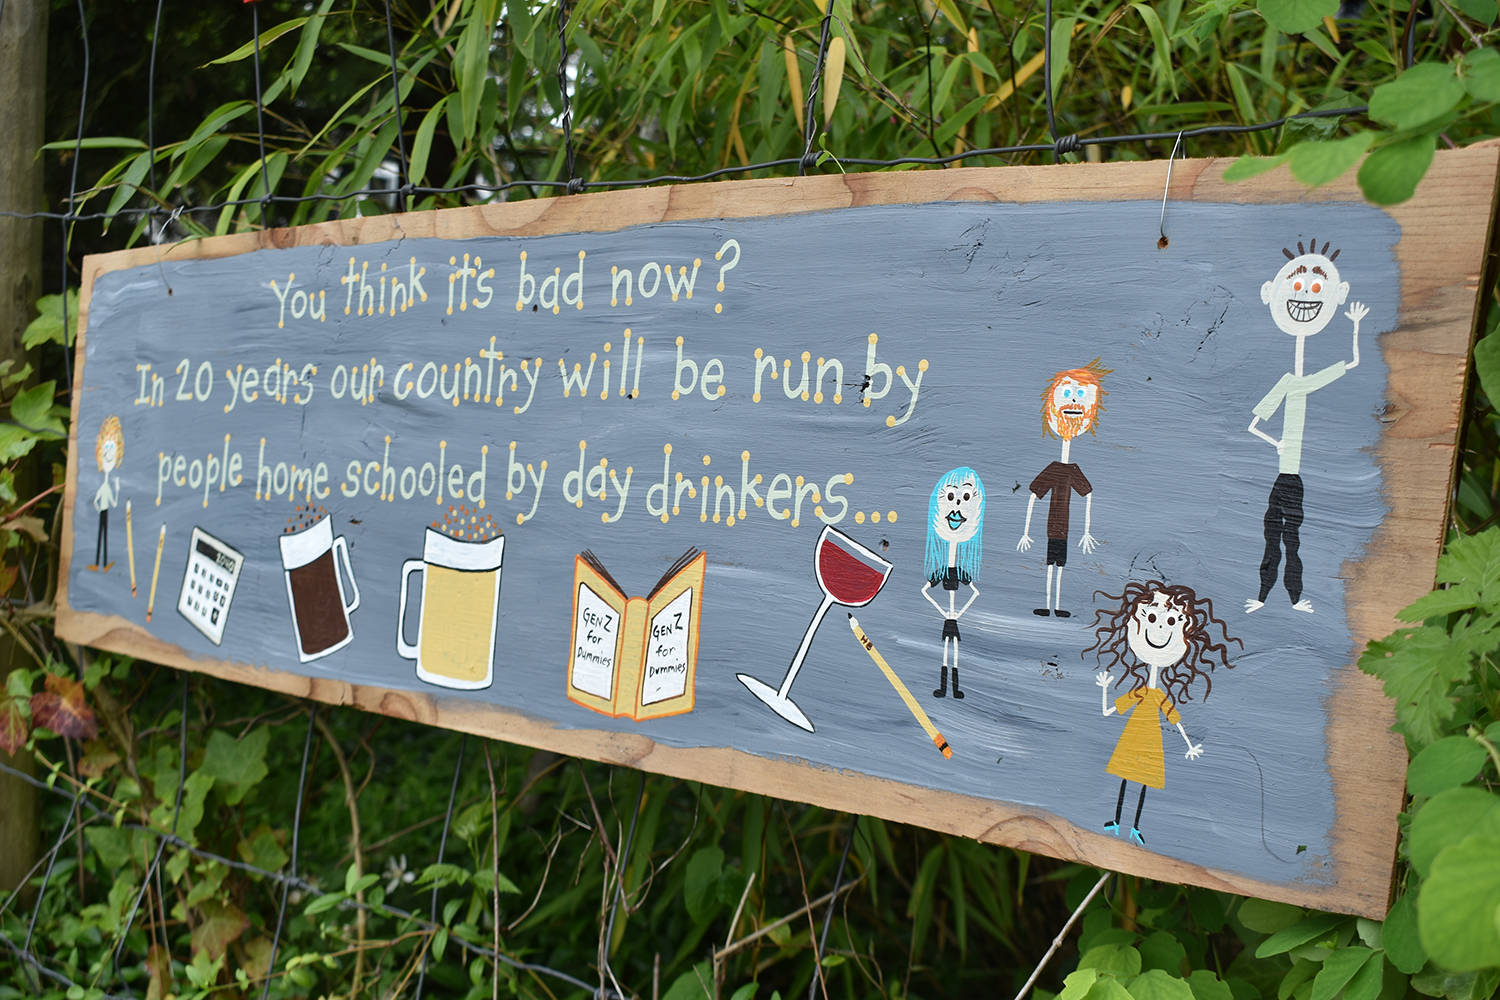 You think it's bad now?
In 20 years our country will be run by
people home schooled by day drinkers...
GEN Z
for
Dummies
GEN Z
for
Dummies